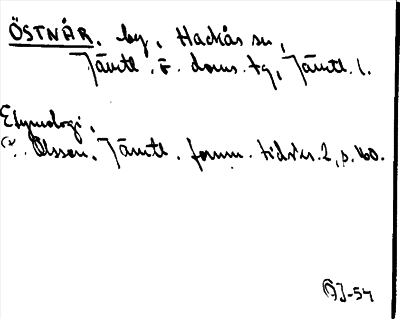 ÖSTNÅR, by, Hackås sn,
Jämtl. ö. doms. tg, Jämtl. l.
Etymologi.
Olsson. Jämtl. fornm. tidskr. 2, s. 160.
-54